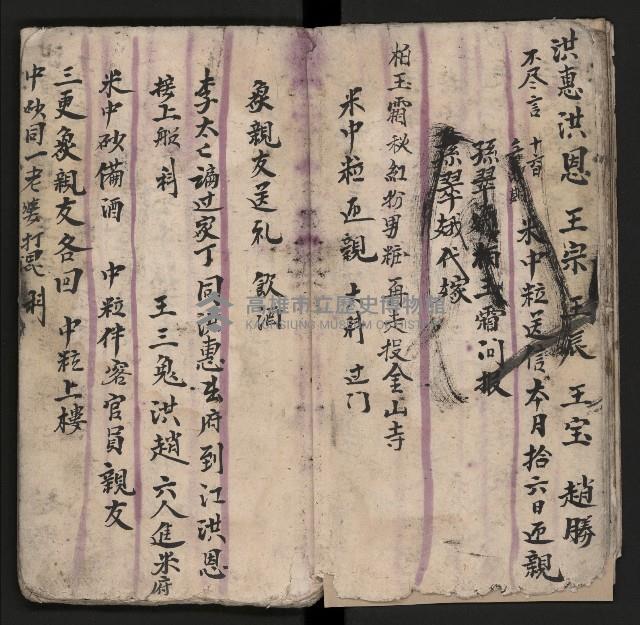 洪惠洪恩 王宗 王宸 王宝 趙勝
不尽言
米中粒送信本月拾六日迎親
孫翠娥柏玉霜问报
孫翠娥代嫁
柏玉霜秋紅扮男粧 再走投金山寺
米中粒迎親 过门
衆親友送礼 飲酒
李太亡謫过家丁 同洪惠出府到江洪恩
接上船 科
王三鬼洪趙六人進米府
米中砂備酒 中粒伴客官員親友
三更衆親友各回 中粒上樓
中砂同一老婆打
高雄市立歷史博物館
KAOHSIUNG MUSEUM OF HISTORY